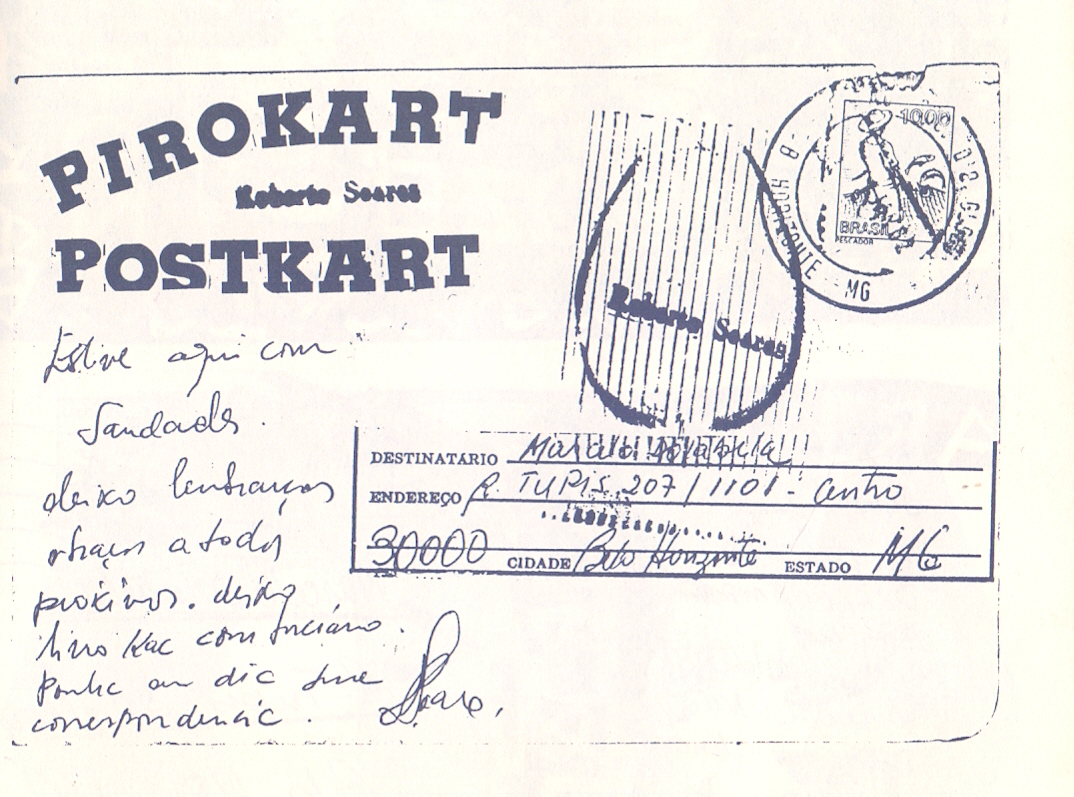 PIROKART
Roberto Soares
POSTKART
Estive aqui com
Saudades.
deixo lembranças
abraços a todos
próximos. deixo
livro Kac com Luciano.
Ponha em dia sua
correspondência.
Soares.
Roberto Soares
B HORIZONTE MG
1000
BRASIL
PESCADOR
DESTINATÁRIO
ENDEREÇO R. TUPIS 207/1101 - Centro
30000 CIDADE Belo Horizonte ESTADO MG